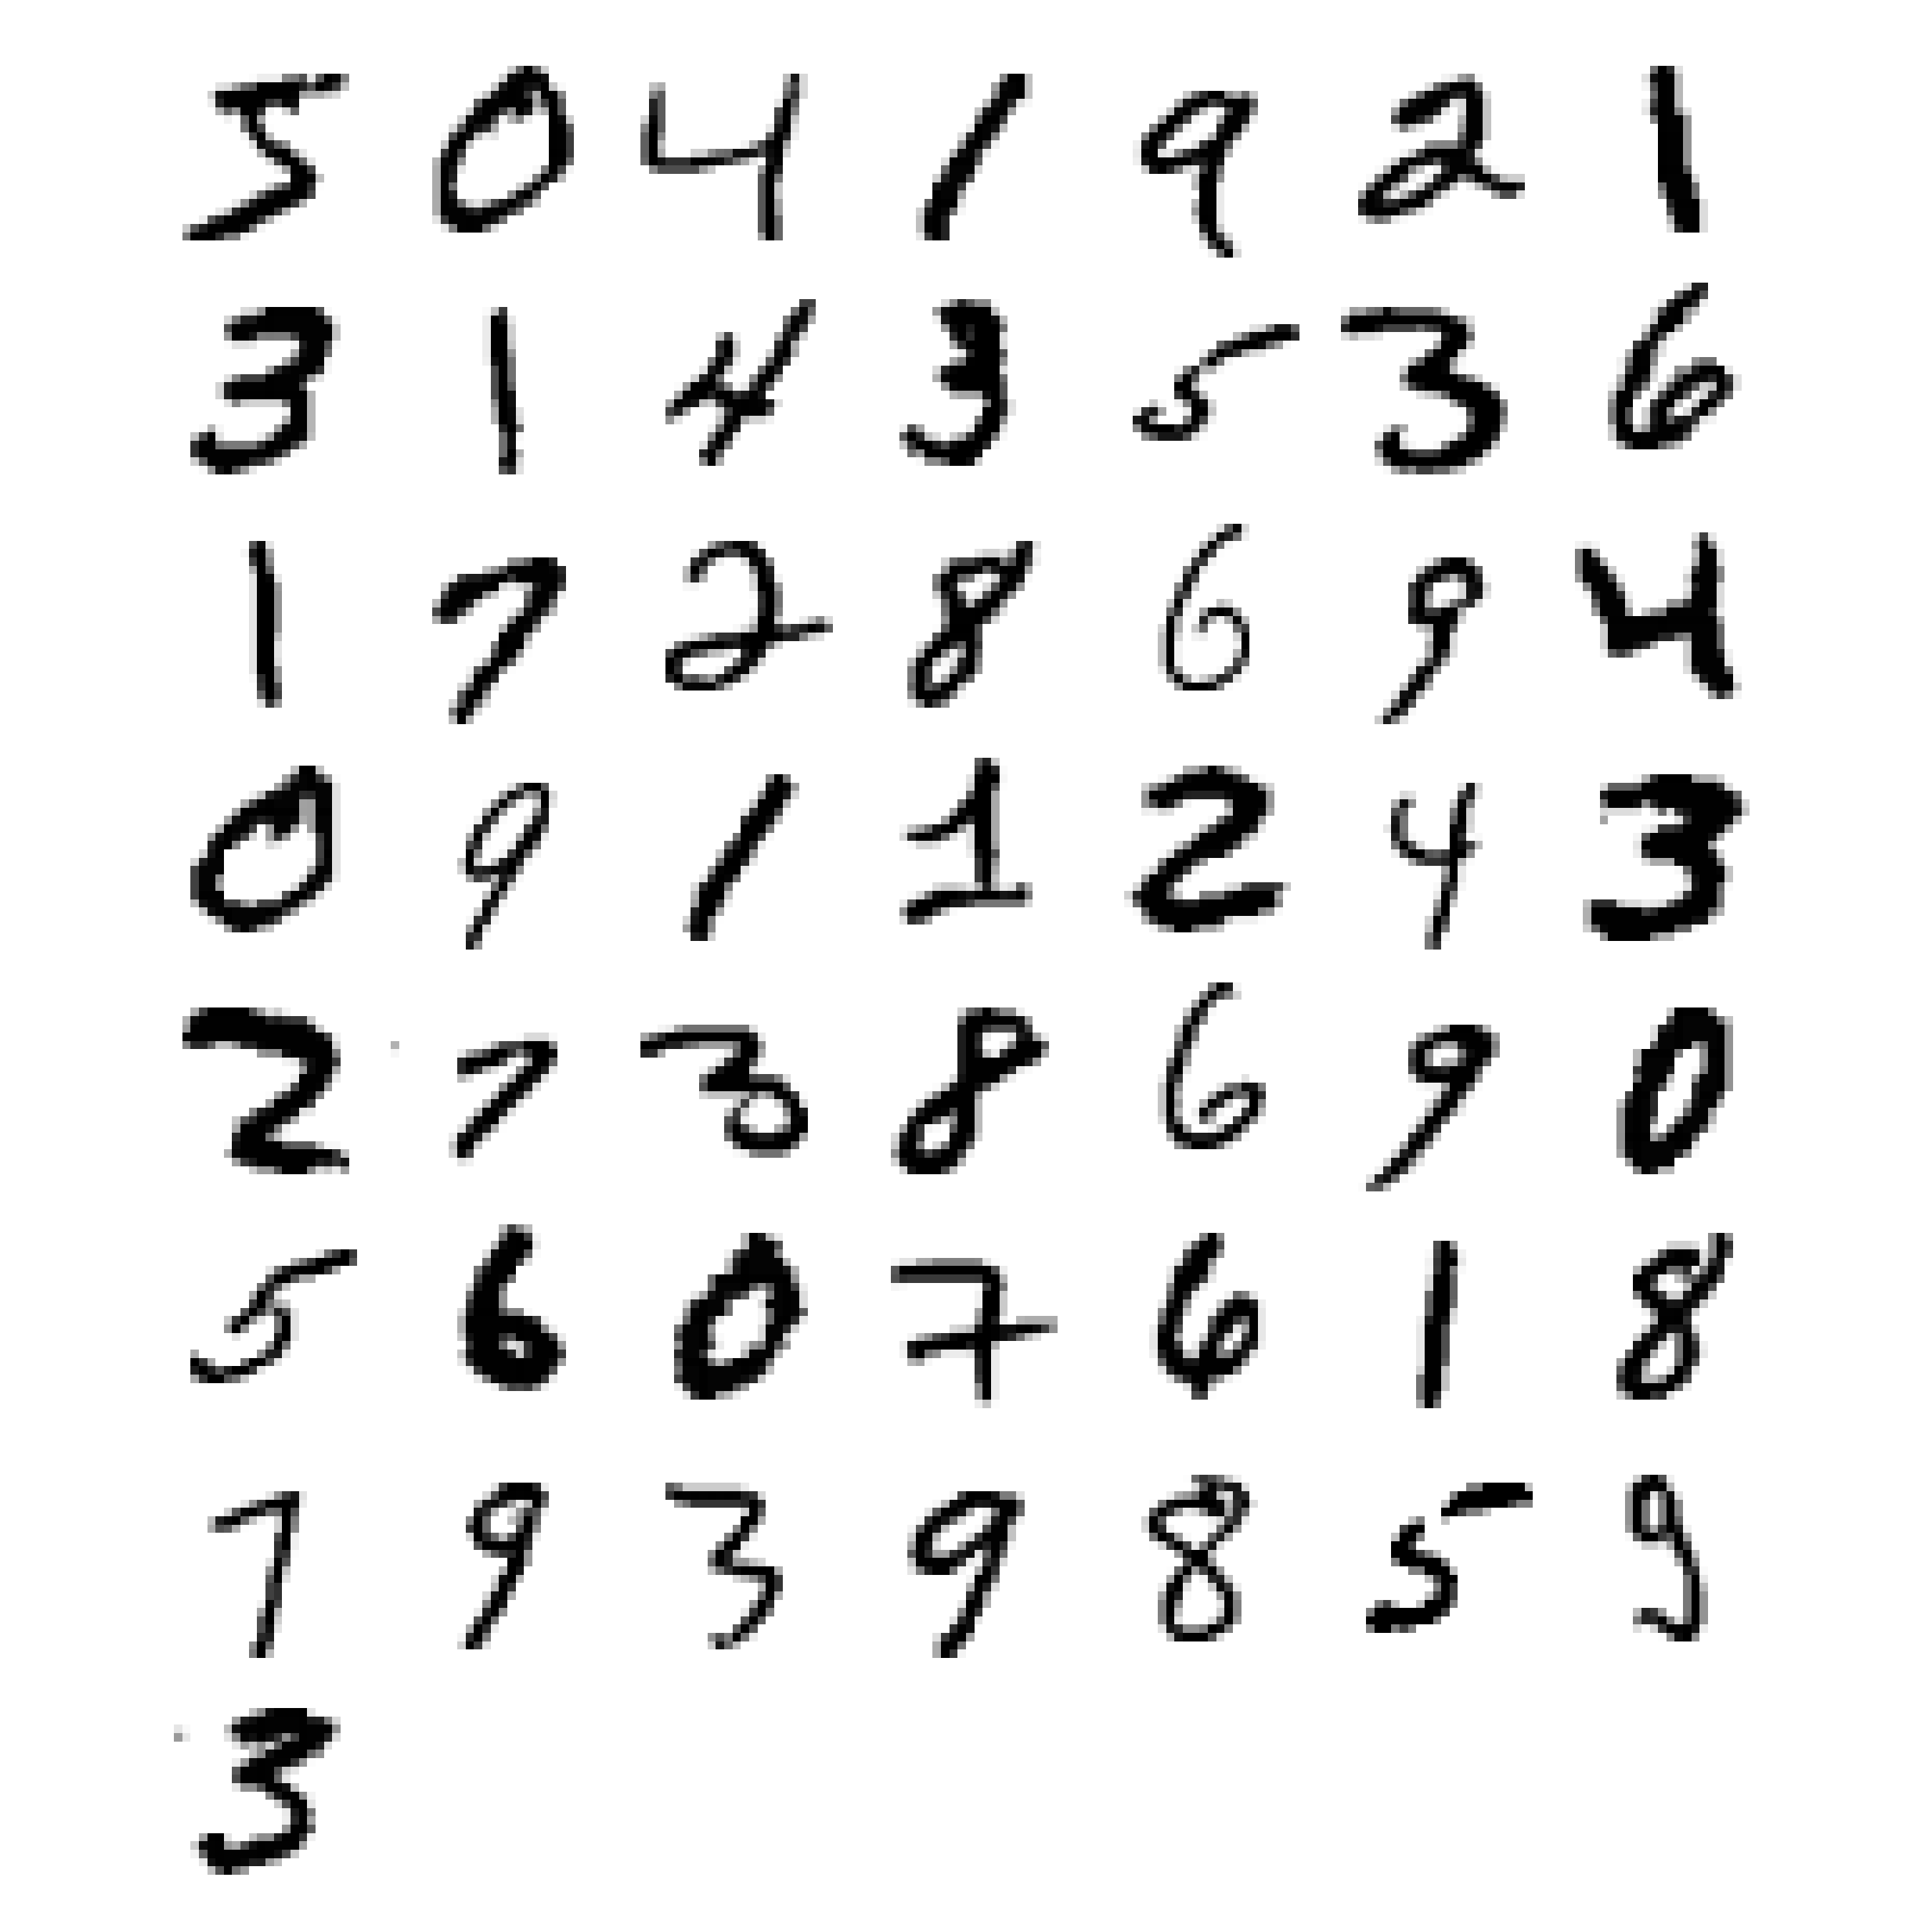 5 0 4 1 9 2 1
3 1 4 3 5 3 6
1 7 2 8 6 9 4
0 9 1 1 2 4 3
2 7 3 8 6 9 0
5 6 0 7 6 1 8
7 9 3 9 8 5 9
3